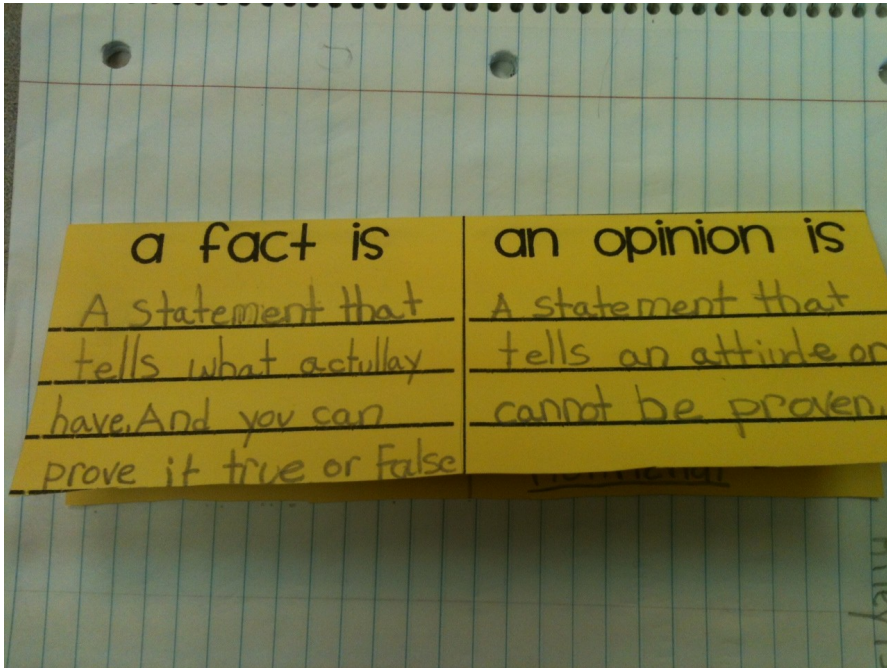 a fact is
A statement that
tells what actullay
have. And you can
prove it true or False
an opinion is
A statement that
tells an attiude or
cannot be proven.